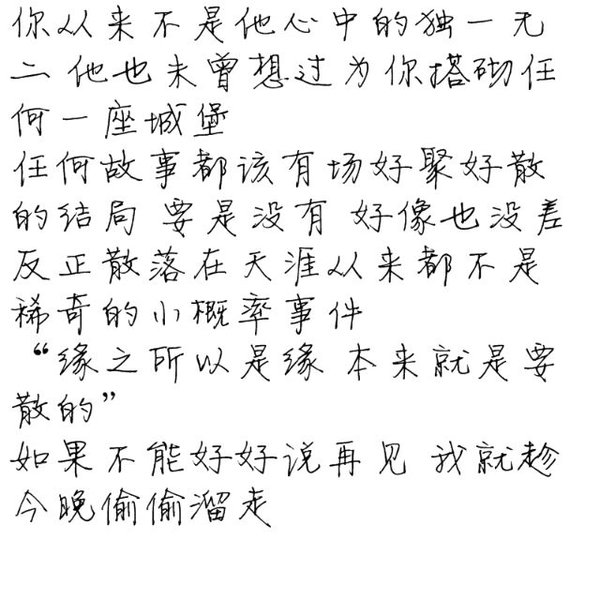 你从来不是他心中的独一无
二 他也未曾想过为你搭砌任
何一座城堡
任何故事都该有场好聚好散
的结局 要是没有 好像也没差
反正散落在天涯从来都不是
稀奇的小概率事件
“缘之所以是缘 本来就是要
散的”
如果不能好好说再见 我就趁
今晚偷偷溜走